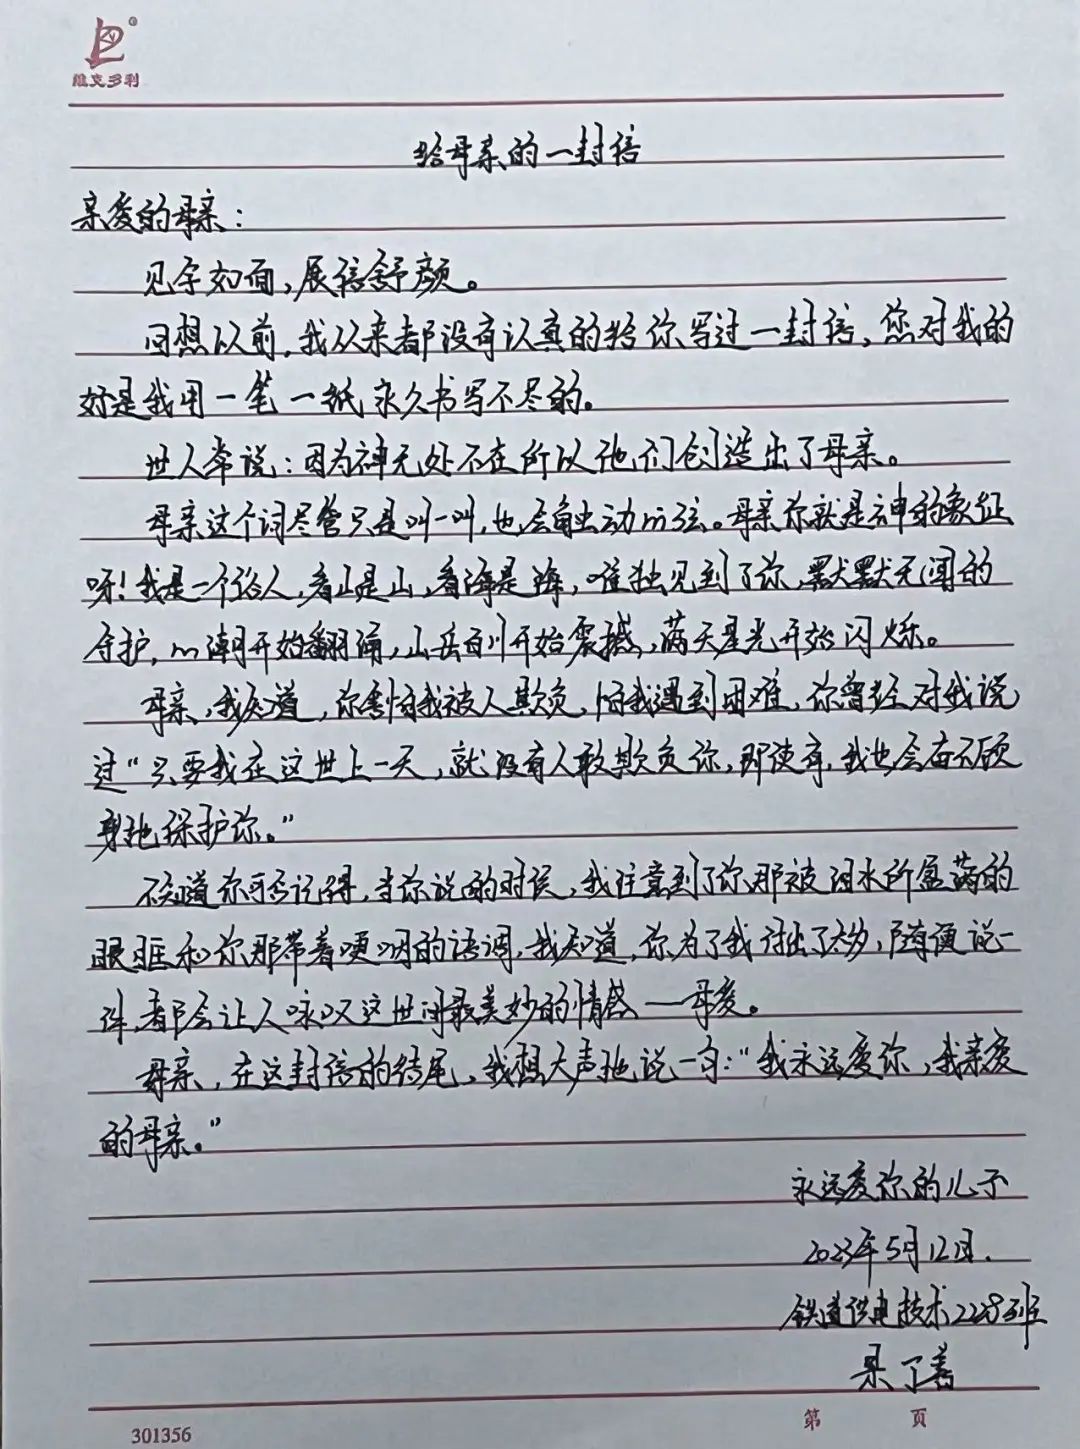 维克多利
给母亲的一封信
亲爱的母亲：
见字如面，展信舒颜。
回想以前，我从来都没有认真的给你写过一封信，您对我的
好是我用一笔一纸永久书写不尽的。
世人常说：因为神无处不在所以他们创造出了母亲。
母亲这个词尽管只是叫一叫，也会触动心弦。母亲你就是神的象征
呀！我是一个俗人，看山是山，看海是海，唯独见到了你，默默无闻的
守护，心潮开始翻涌，山岳开始震撼，满天星光开始闪烁。
母亲，我知道，你害怕我被人欺负，怕我遇到困难，你曾经对我说
过“只要我在这世上一天，就没有人敢欺负你，即使有，我也会奋不顾
身地保护你。”
不知道你可否记得，当你说的时候，我注意到了你那被泪水所盈满的
眼眶和你那带着哽咽的语调，我知道，你为了我付出了太多，随便说一
件，都会让人咏叹这世间最美妙的情感—母爱。
母亲，在这封信的结尾，我想大声地说一句：“我永远爱你，我亲爱
的母亲。”
永远爱你的儿子
2023年5月12日.
铁道供电技术2228班
了善
第 页
301356